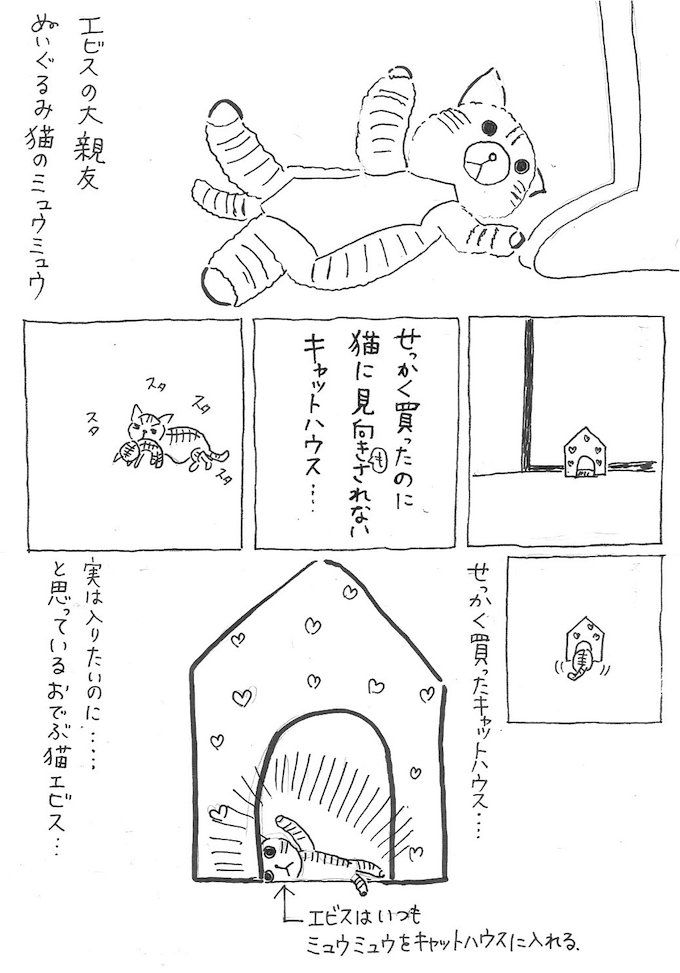 エビスの大親友
ぬいぐるみ猫のミュウミュウ
せっかく買ったのに
猫に見向きもされない
キャットハウス…
スタ
スタ
スタ
スタ
せっかく買ったキャットハウス‥‥
実は入りたいのに‥‥‥
と思っているおでぶ猫エビス…
エビスはいつも
ミュウミュウをキャットハウスに入れる.